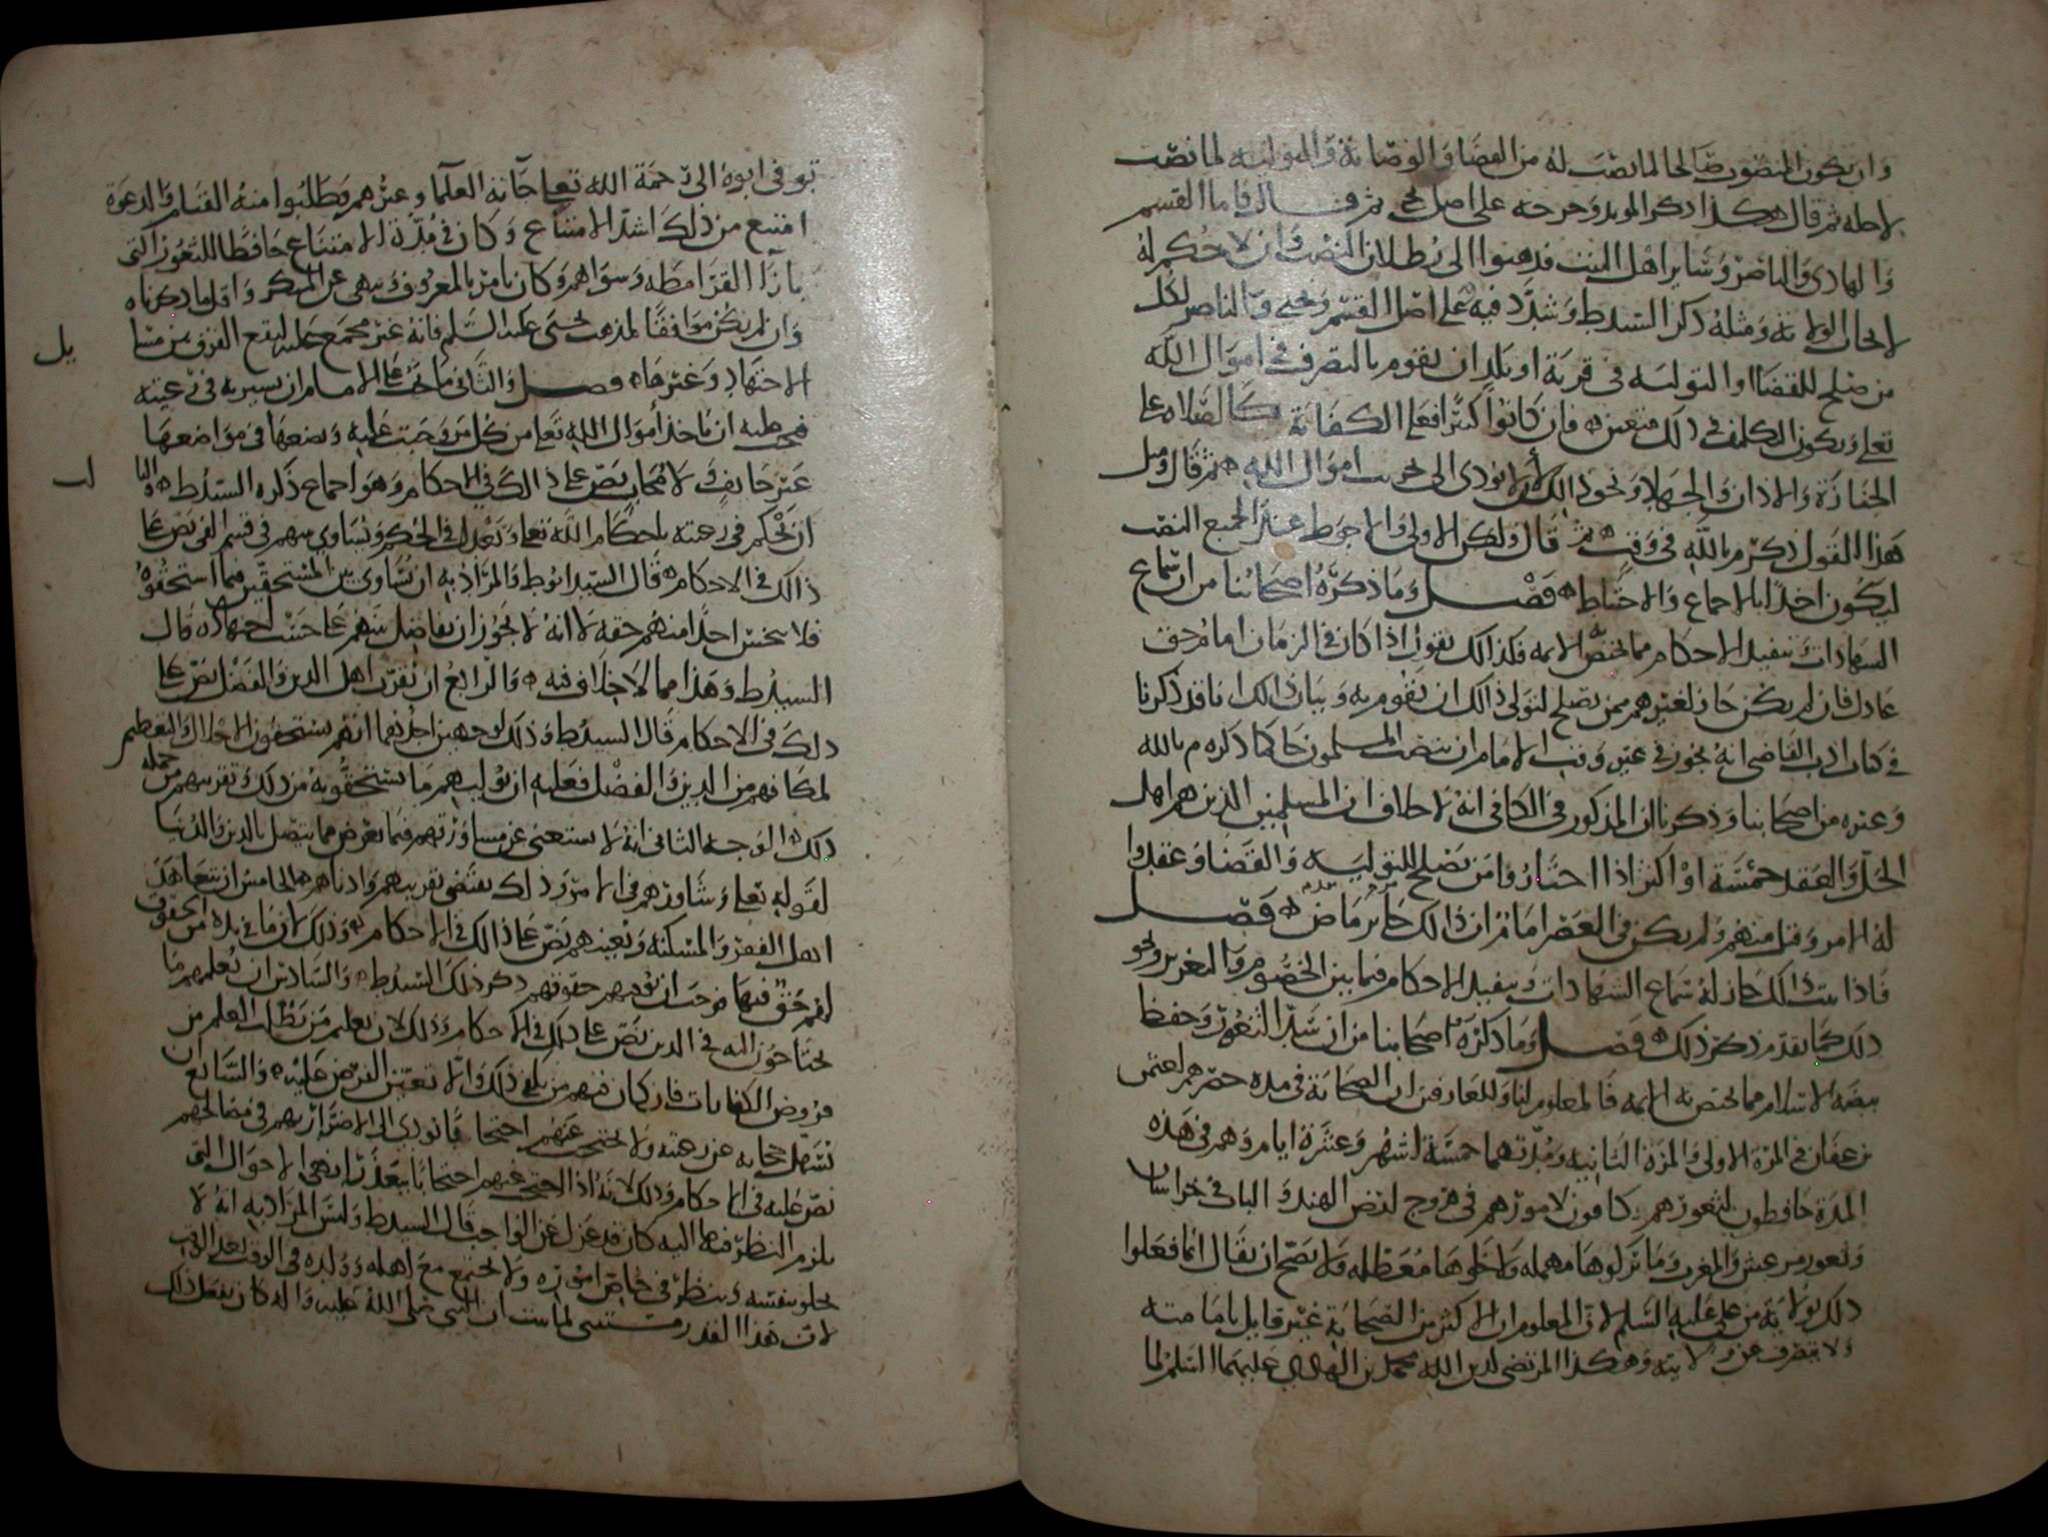 وان يكون المنصوب صالحا لما نصب له من القضا والوصاية والتولية لما نصب
لاجله ثم قال هكذا ذكر المويد وخرجه على اصل يحيى ثم قال فاما القسم
والهادي والناصر وساير اهل البيت فذهبوا الى بطلان النصب وان لا حكم له
لانحال الولاية ومثله ذكر السيد ط وشدد فيه على اصل القسم ويحيى والناصر لكل
من صلح للقضا او التولية في قرية او بلد ان يقوم بالتصرف في اموال الله
تعلى ويكون التكليف في ذلك متعين فان كانوا كثرا فعلى الكفاية كالصلاه على
الجنازة والاذان والجهاد ونحو ذلك لان لا يودي الى اموال الله ثم قال ومثل
هذا القول ذكر م بالله في وقت ثم قال ولكن الاولى والاحوط عند الجميع النصب
ليكون اخذا بالاجماع والاحتياط فصل وما ذكره اصحابنا من ان سماع
الشهادات وتنفيذ الاحكام مما يختص الايمه فكذلك نقول اذا كان في الزمان امام حق
عادل فان لم يكن جاز لغيرهم ممن يصلح لتولي ذلك ان يقوم به وبيان ذلك انا قد ذكرنا
في كتاب ادب القاضي انه يجوز في غير وقت الامام ان ينصب المسلمون حاكما ذكره م بالله
وغيره من اصحابنا وذكرنا ان المذكور في الكافي انه لا خلاف ان المسلمين الذين هم اهل
الحل والعقد خمسة او اكثر اذا اختاروا من يصلح للتولية والقضا وعقدوا
له الامر وقبل منهم ولم يكن في العصر امام ان ذلك جايز ماض فصل
فاذا ثبت ذلك جاز له سماع الشهادات وتنفيذ الاحكام فيما بين الخصوم والتعزير ونحو
ذلك كما تقدم ذكر ذلك فصل وما ذكره اصحابنا من ان سد الثغور وحفظ
بيضه الاسلام مما يختص به الايمه فالمعلوم لنا وللعارفين ان الصحابة في مده حصرهم لعثمن
بن عفان في المرة الاولى والمرة الثانيه ومدتهما خمسة اشهر وعشرة ايام وهم في هذه
المدة حافظون لثغورهم كافون لامورهم في فروج ارض الهند والباب في خراسان
وثغور مرعش والمغرب وما تركوها مهمله ولا خلوها معطله ولا يصح ان يقال انما فعلوا
ذلك بولاية من علي عليه السلم لان المعلوم ان الاكثر من الصحابة غير قايل بامامته
ولا يتصرف عن ولايته وهكذا المرتضى لدين الله محمد بن الهادي عليهما السلم لما
توفي ابوه الى رحمة الله تعلى جآته العلما وغيرهم وطلبوا منه القيام والدعوة
امتنع من ذلك اشد الامتناع وكان في مدة الامتناع حافظا للثغور التي
بازآ القرامطه وسواهم وكان يامر بالمعروف وينهى عن المنكر واقل ما ذكرناه
وان لم يكن موافقا لمذهب يحيى عليه السلم فانه غير مجمع عليه ليقع الفرق بين مسا
الاجتهاد وغيرها فصل والثاني ما يجب على الامام ان يسير به في رعيته
يل
ان ياخذ اموال الله تعلى من كل من وجبت عليه ويضعها في مواضعها
غير حايف ولا محاب نص على ذلك في الاحكام وهو اجماع ذكره السيد ط والثا
لث
ان يحكم في رعيته باحكام الله تعلى ويعدل في الحكم ويساوي بينهم في قسم الفي نص على
ذالك في الاحكام قال السيد ابوط والمراد به ان يساوي بين المستحقين فيما استحقوه
فلا يبخس احدا منهم حقه لا انه لا يجوز ان يفاضل بينهم على حسب اجتهاده قال
السيد ط وهذا مما لا خلاف فيه والرابع ان يقرب اهل الدين والفضل نص على
ذلك في الاحكام قال السيد ط وذلك لوجهين احدهما انهم يستحقون الاجلال والتعظيم
لمكانهم من الدين والفضل فعليه ان يوليهم ما يستحقونه من ذلك وتقريبهم من جمله
ذلك الوجه الثاني انه لا يستغنى عن مشاورتهم فيما يعرض مما يتصل بالدين والدنيا
لقوله تعلى وشاورهم في الامر وذلك يقتضي تقريبهم وادناهم الخامس ان يتعاهد
اهل الفقر والمسكنه ويعينهم نص على ذالك في الاحكام وذلك لان ما في يده من الحقوق
لهم حق فيها فوجب ان يوفيهم حقوقهم ذكر ذلك السيد ط والسادس ان يعلمهم ما
يحتاجون اليه في الدين نص على ذلك في الاحكام وذلك لان تعليم من يطلب العلم من
فروض الكفايات فان كان فيهم من يكفي ذلك والا تعين الفرض عليه والسابع ان
يسهل حجابه عن رعيته ولا يحتجب عنهم احتجابا يودي الى الاضرار بهم في مصالحهم
نص عليه في الاحكام وذلك لانه اذا احتجب عنهم احتجابا يتعذر انهى الاحوال التي
يلزم النظر فيها اليه كان قد عزل عن الواجب قال السيد ط وليس المراد به انه لا
يخلو بنفسه وينظر في خاص اموره ولا يجتمع مع اهله وولده في الوقت بعد الوقت
لان هذا القدر مستثنى لما ثبت ان النبي صلى الله عليه واله كان يفعل ذلك